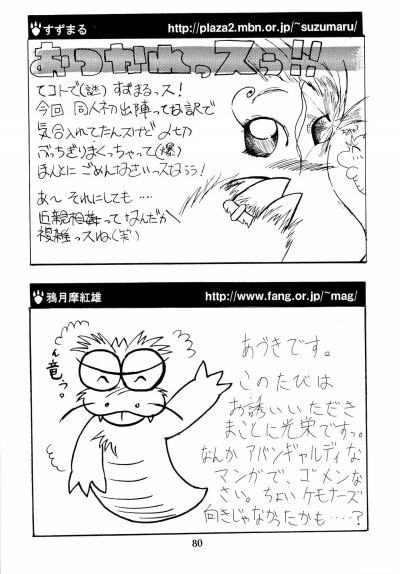 すずまる http://plaza2.mbn.or.jp/~suzumaru/
おつかれっスっ!!!
てコトで(謎) すずまるっス!
今回 同人初出陣ってな訳で
気合入れてたんスけど〆切
ぶっちぎりまくっちゃって(爆)
ほんとに ごめんなさいっスなぅぅ!
あ〜 それにしても‥‥
近親相姦って なんだか
複雑っスね(笑)
鴉月摩紅雄 http://www.fang.or.jp/~mag/
竜
あづきです。
このたびは
お誘いいただき
まことに光栄ですっ。
なんか アバンギャルディな
マンガで、ゴメンな
さい。ちょい ケモナーズ
向きじゃなかったかも‥‥?
80